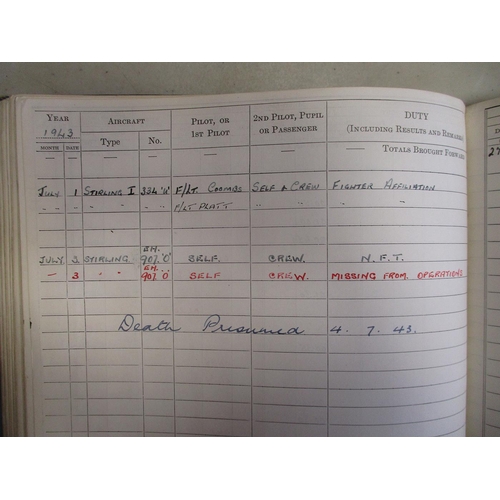 YEAR AIRCRAFT PILOT, OR 1ST PILOT 2ND PILOT, PUPIL OR PASSENGER DUTY (INCLUDING RESULTS AND REMARKS)
1943
MONTH DATE Type No.
— — — — — — TOTALS BROUGHT FORWARD
JULY 1 STIRLING I 334 'U' F/LT. COOMBS SELF & CREW FIGHTER AFFILIATION
" " " " " F/LT PLATT " " "
JULY 3 STIRLING EH. 907. 'O' SELF. CREW. N.F.T.
— 3 " " EH. 907. 'O' SELF CREW. MISSING FROM OPERATIONS
Death Presumed 4. 7. 43.